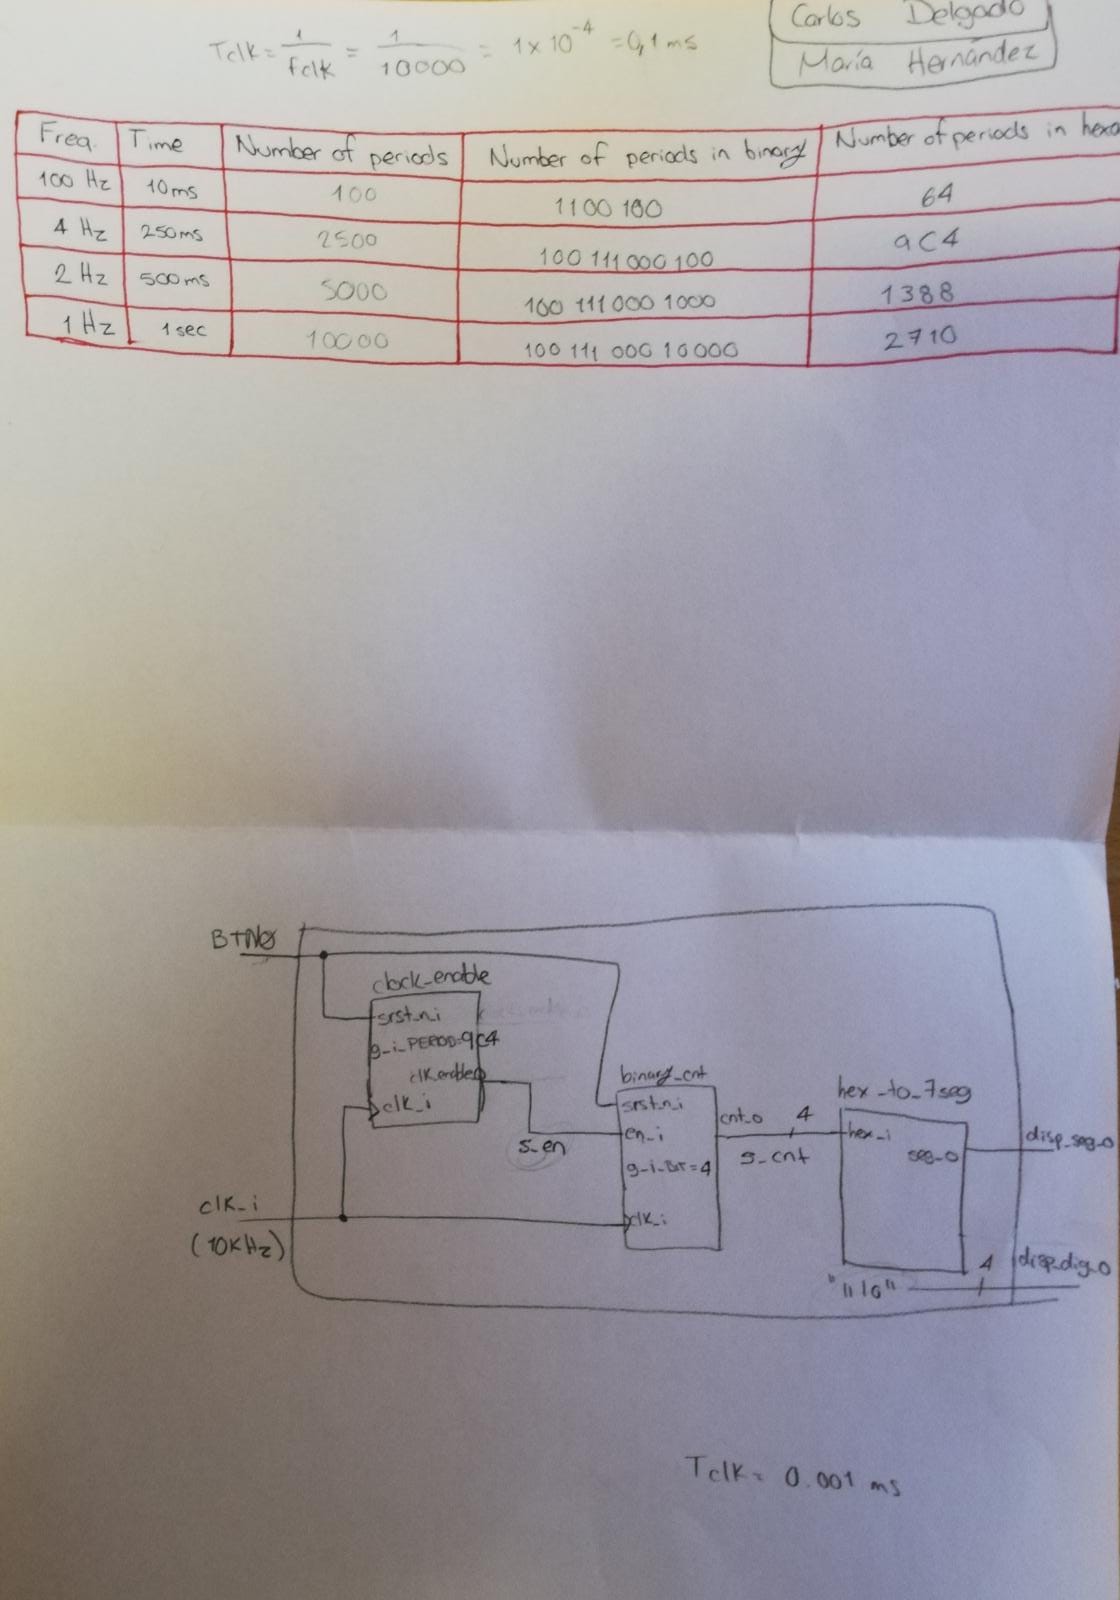 Carlos Delgado
María Hernández
Tclk = 1/fclk = 1/10000 = 1x10^-4 = 0,1 ms
Freq. Time Number of periods Number of periods in binary Number of periods in hexa
100 Hz 10ms 100 1100 100 64
4 Hz 250ms 2500 100 111 000 100 9C4
2 Hz 500ms 5000 100 111 000 1000 1388
1 Hz 1 sec 10000 100 111 000 10000 2710
BTN0
clock_enable
srst_n_i
g_i_PERIOD=9C4
clk_enable
clk_i
s_en
binary_cnt
srst_n_i
en_i
g_i_BIT=4
clk_i
cnt_o 4
s_cnt
hex_to_7seg
hex_i
seg_o
disp_seg_o
clk_i
(10KHz)
4 disp_dig_o
"1110"
Tclk = 0.001 ms